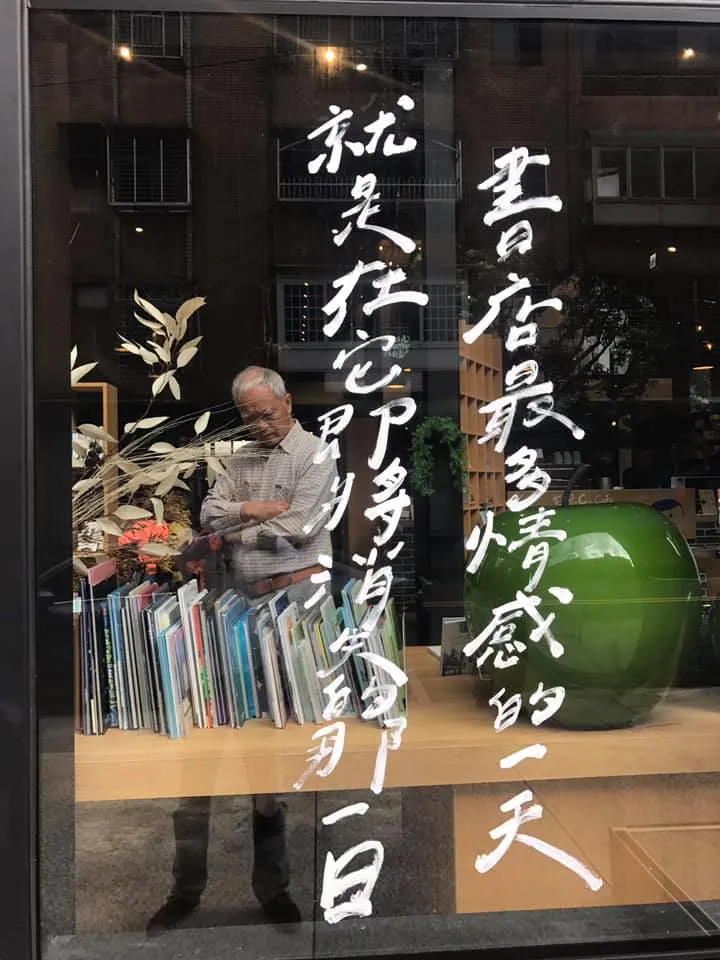 書店最多情感的一天
就是在它即將消失的那一日